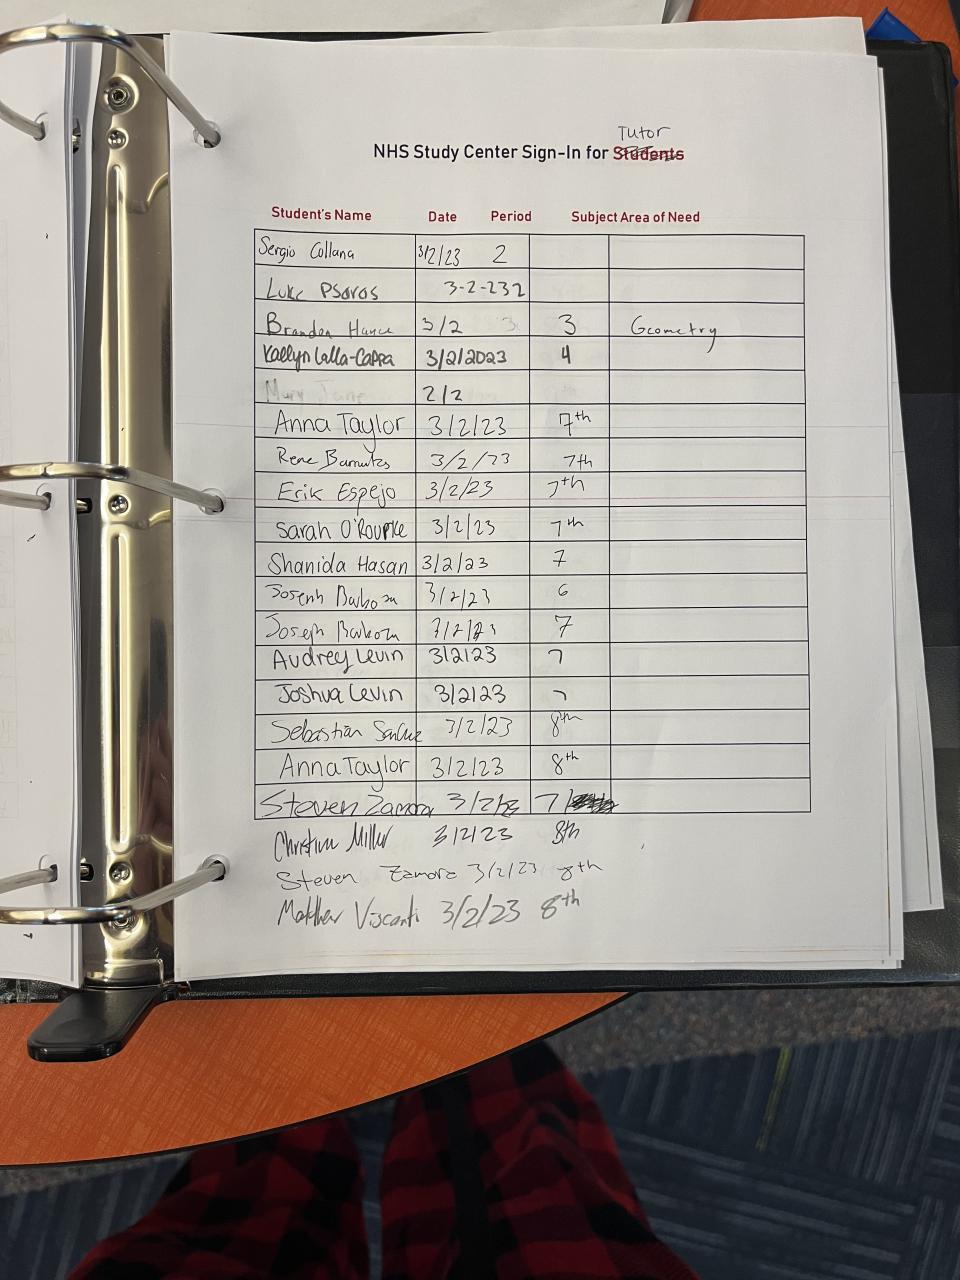 Tutor
NHS Study Center Sign-In for Students
Student's Name Date Period Subject Area of Need
Sergio Collana 3/2/23 2
Luke Psaros 3-2-232
Brandon Hance 3/2 3 3 Geometry
Kaelyn Lalla-Cappa 3/2/2023 4
Mary Jane 2/2
Anna Taylor 3/2/23 7th
Rene 3/2/23 7th
Erik Espejo 3/2/23 7th
Sarah O'Rourke 3/2/23 7th
Shanida Hasan 3/2/23 7
Joseph Barboza 3/2/23 6
Joseph Barboza 3/2/23 7
Audrey Levin 3/2/23 7
Joshua Levin 3/2/23 7
Sebastian 3/2/23 8th
Anna Taylor 3/2/23 8th
Steven Zamora 3/2/23 7
Christian Miller 3/2/23 8th
Steven Zamora 3/2/23 8th
Matthew Visconti 3/2/23 8th